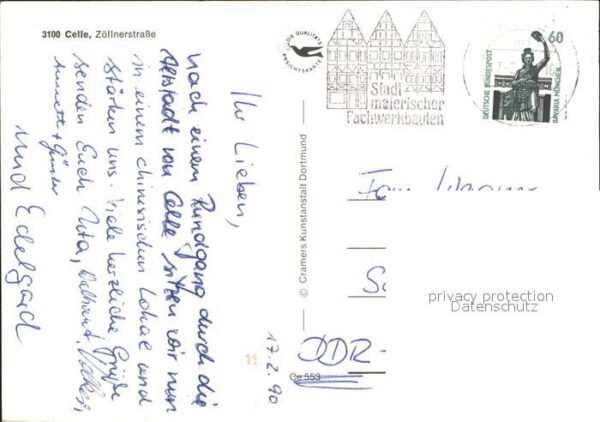 3100 Celle, Zöllnerstraße
DIE QUALITÄTS
ANSICHTSKARTE
Stadt
malerischer
Fachwerkbauten
60
DEUTSCHE BUNDESPOST
BAVARIA MÜNCHEN
17.2.90
Ihr Lieben,
nach einem Rundgang durch die
Altstadt von Celle sitzen wir nun
in einem chinesischen Lokal und
stärken uns. Viele herzliche Grüße
senden Euch Uta, Volker,
Annette + Günter
und Edelgard
© Cramers Kunstanstalt Dortmund
Fam.
DDR-
Ce 553
privacy protection
Datenschutz